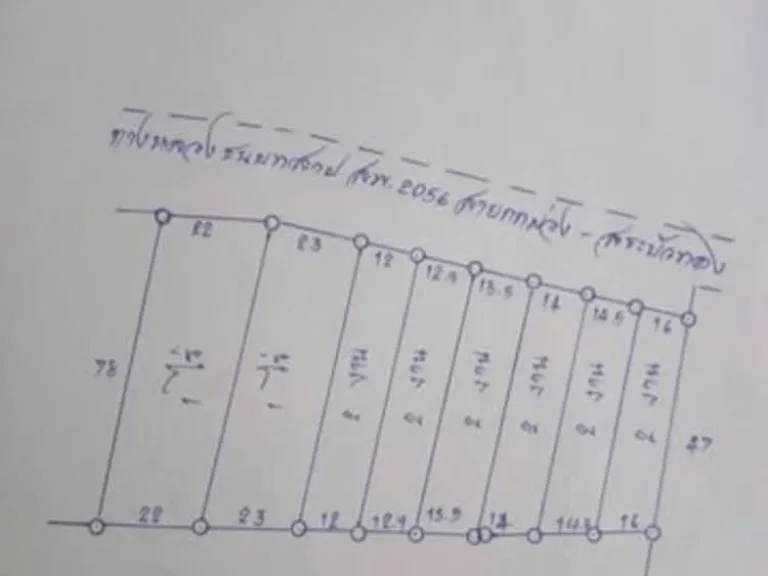 ทางหลวงชนบทสาย สพ. 2056 สายกกม่วง - สระบัวทอง
22 23 12 12.9 13.5 14 14.5 16
78
1 ไร่ 1 ไร่ 2 งาน 2 งาน 2 งาน 2 งาน 2 งาน 2 งาน
47
22 23 12 12.9 13.5 14 14.5 16